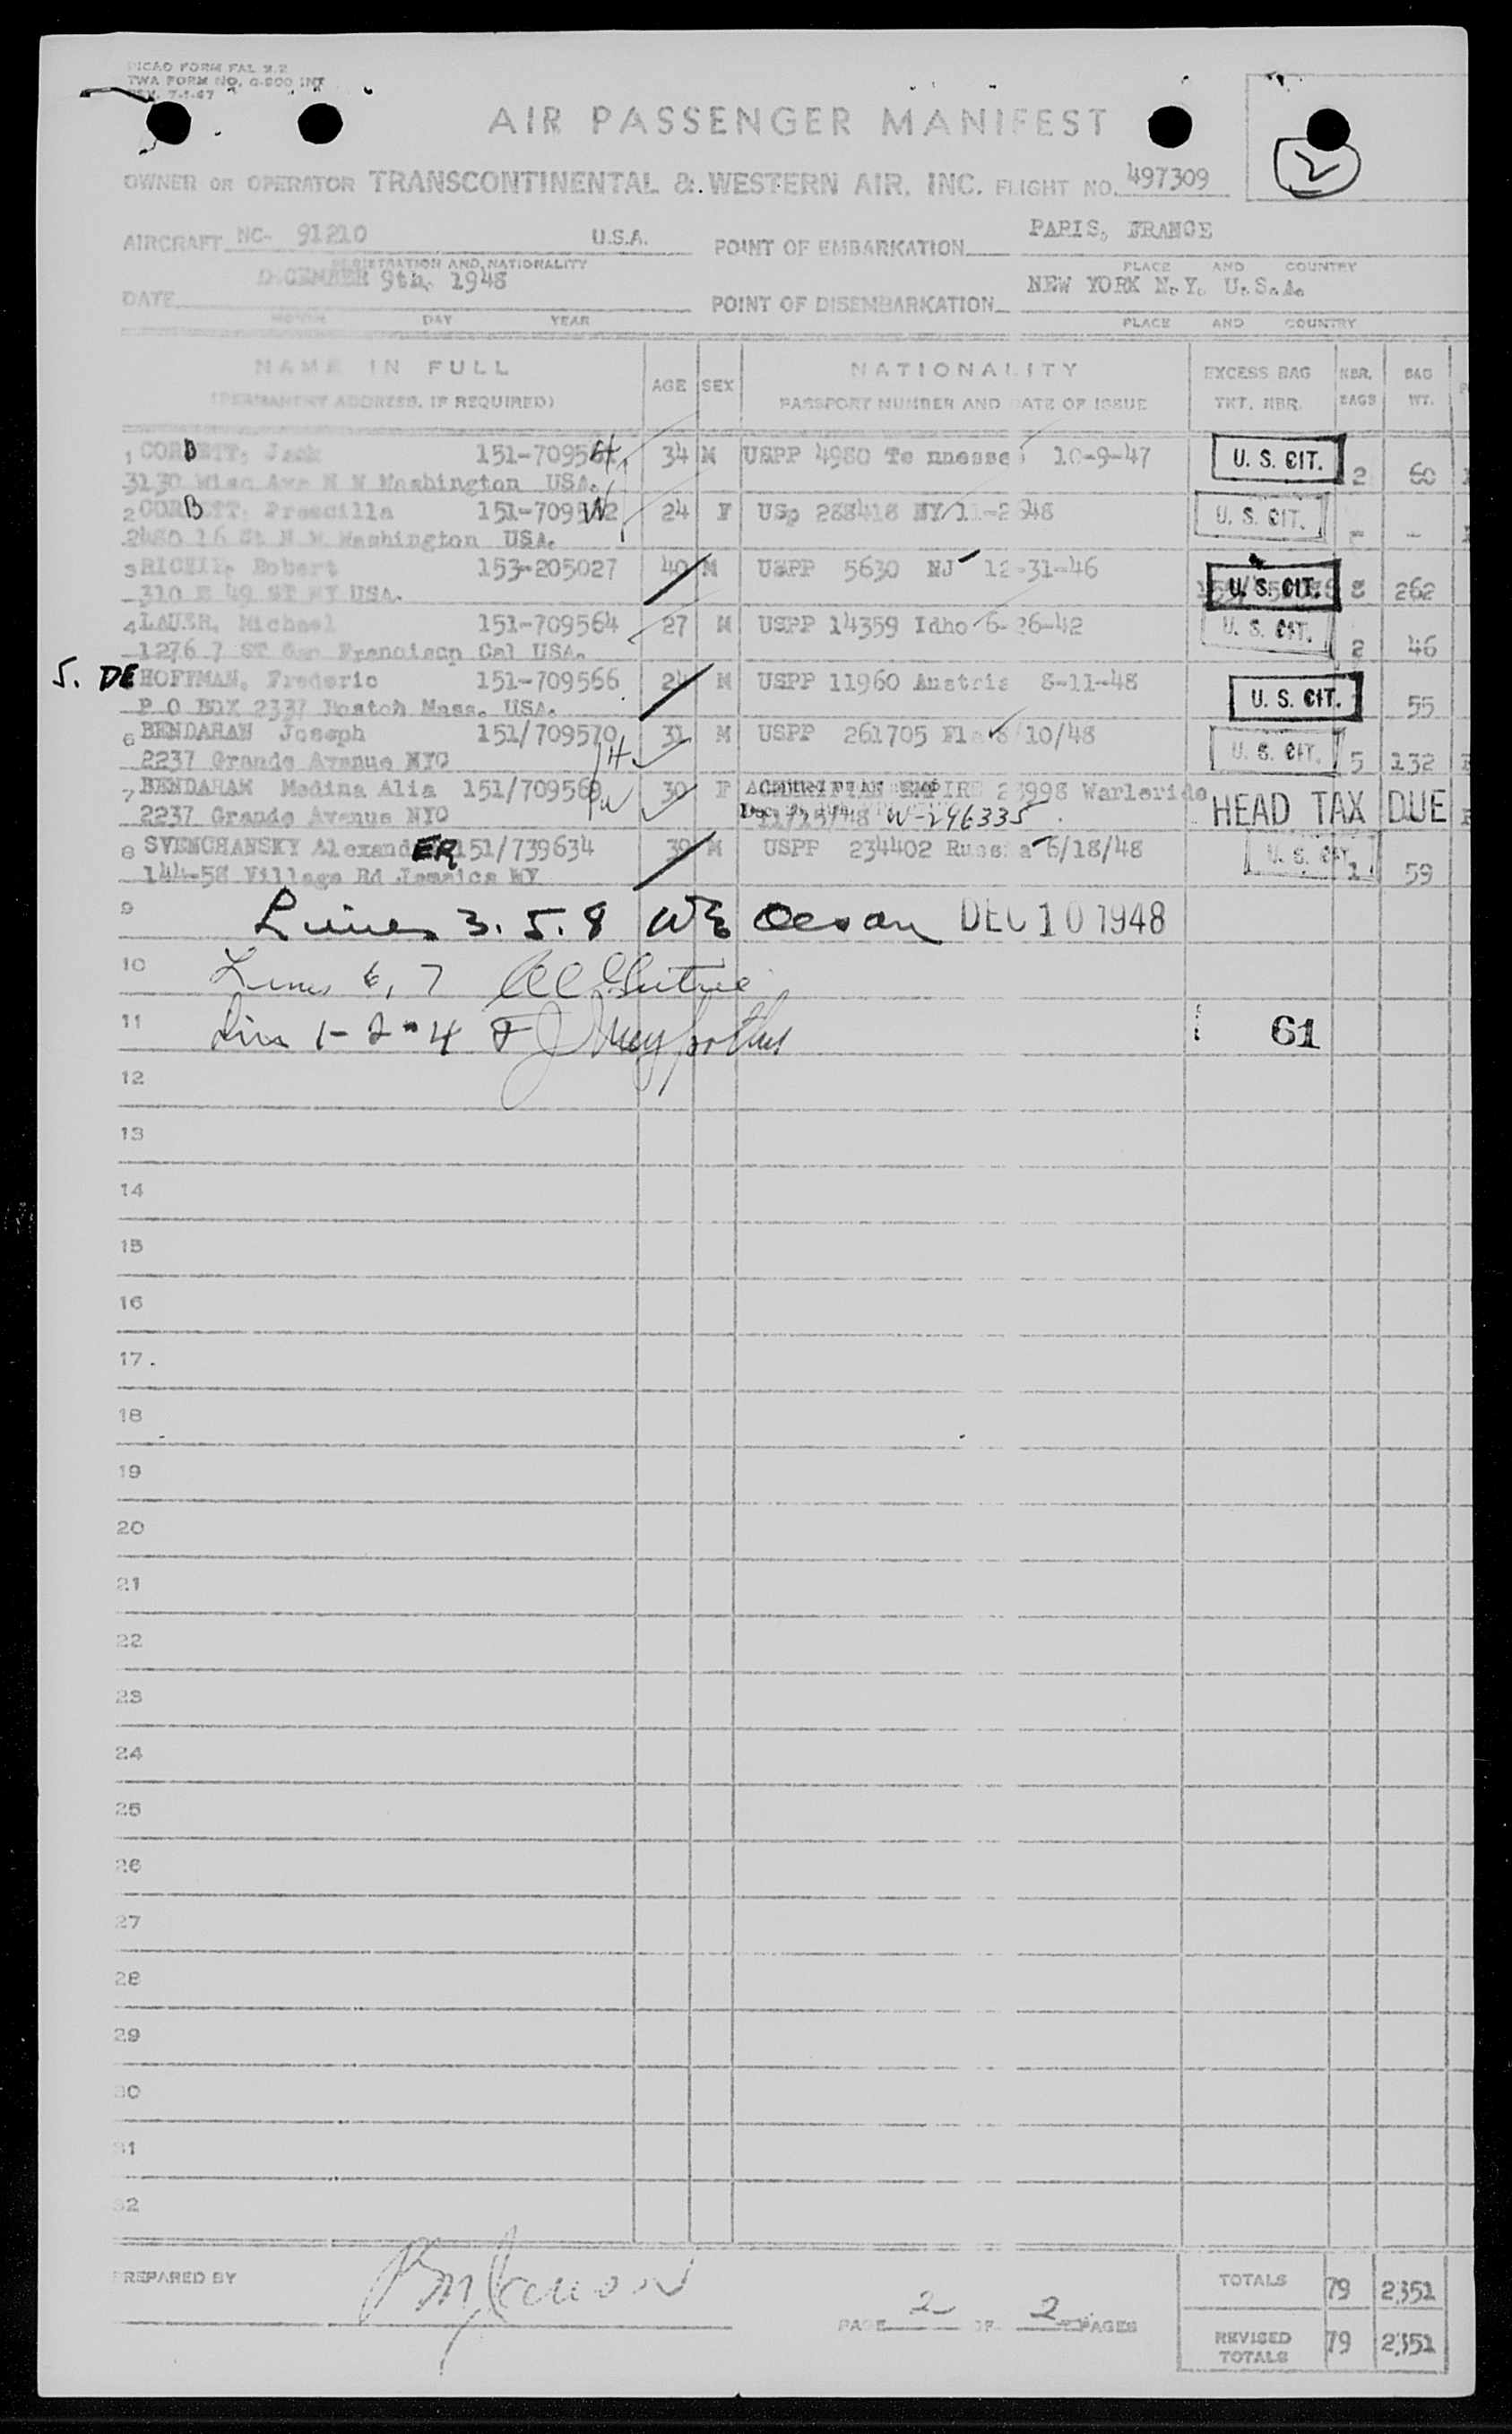 ICAO FORM FAL 2.2
TWA FORM NO. O-800 INT
REV. 7-1-47
AIR PASSENGER MANIFEST
2
OWNER OR OPERATOR TRANSCONTINENTAL & WESTERN AIR, INC. FLIGHT NO. 497309
AIRCRAFT NC- 91210 U.S.A. POINT OF EMBARKATION PARIS, FRANCE
REGISTRATION AND NATIONALITY PLACE AND COUNTRY
DATE DECEMBER 9th, 1948 POINT OF DISEMBARKATION NEW YORK N.Y. U.S.A.
MONTH DAY YEAR PLACE AND COUNTRY
NAME IN FULL AGE SEX NATIONALITY EXCESS BAG NBR. BAG
(PERMANENT ADDRESS, IF REQUIRED) PASSPORT NUMBER AND DATE OF ISSUE TKT. NBR. BAGS WT.
1 CORBETT, Jack 151-70956 H 34 M USPP 4980 Tennessee 10-9-47 U. S. CIT. 2 60
3130 Wisc Ave N W Washington USA.
2 CORBETT, Prescilla 151-709562 W 24 F USp 288418 NY U. S. CIT. - -
2480 16 St N W Washington USA.
3 Robert 153-205027 40 M USPP 5630 NJ 12-31-46 U. S. CIT. 8 262
310 E 49 ST NY USA.
4 LAUER, Michael 151-709564 27 M USPP 14359 Idho 6-26-42 U. S. CIT. 2 46
1276 7 ST San Francisco Cal USA.
5. DE HOFFMAN, Frederic 151-709566 24 M USPP 11960 Austria 8-11-48 U. S. CIT. 55
P O BOX 2337 Boston Mass. USA.
6 BENDAHAN Joseph 151/709570 H 31 M USPP 261705 Fla 8/10/48 U. S. CIT. 5 132
2237 Grande Avenue NYC
7 BENDAHAN Medina Alia 151/709569 W 30 F EMPIRE HEAD TAX DUE
2237 Grande Avenue NYC 11/15/48 W-296335
8 SVENCHANSKY AlexandER 151/739634 39 M USPP 234402 Russia 6/18/48 U. S. CIT. 1 59
144-58 Village Rd Jamaica NY
9 Lines 3.5.8 DEC 10 1948
10 Lines 6, 7
11 Lin 1-2-4 61
12
13
14
15
16
17
18
19
20
21
22
23
24
25
26
27
28
29
30
31
32
PREPARED BY
PAGE 2 OF 2 PAGES
TOTALS 79 2351
REVISED TOTALS 79 2351